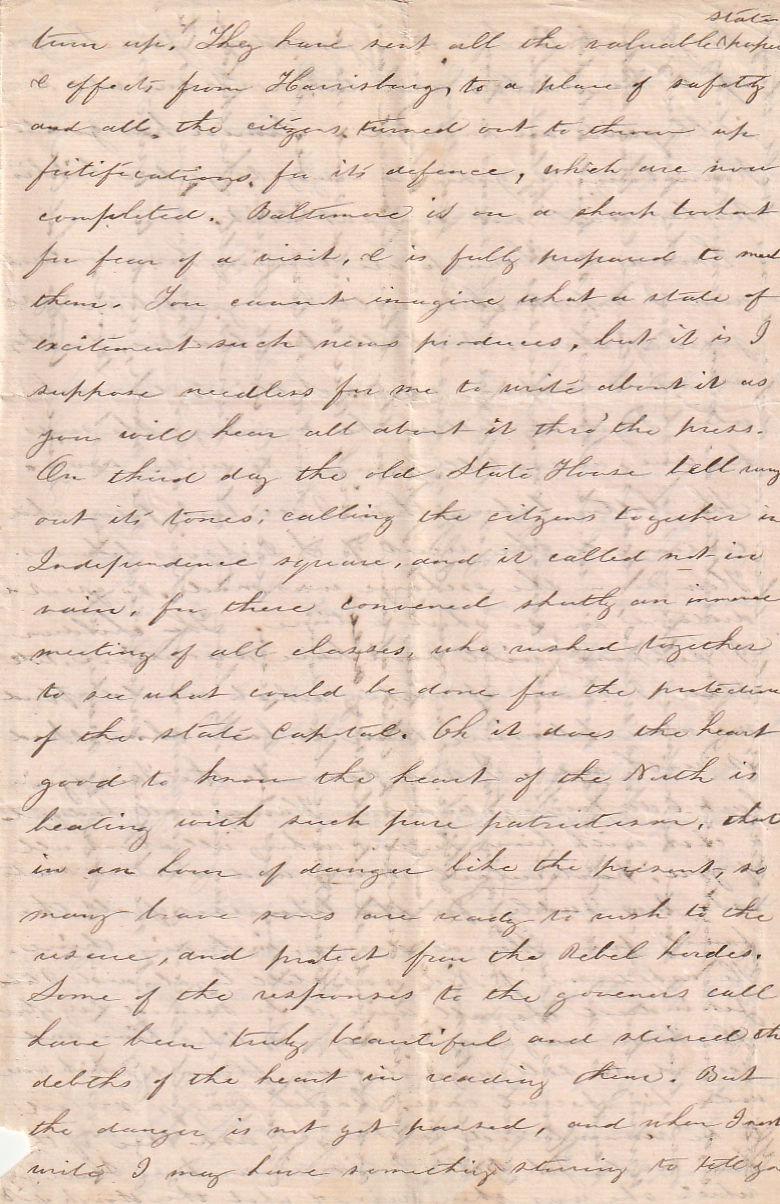 state
turn up. They have sent all the valuable ^ pape
& effects from Harrisburg, to a place of safety
and all, the citizens turned out to throw up
fortifications, for it's defence, which are now
completed. Baltimore is on a sharp lookout
for fear of a visit, & is fully prepared to meet
them. You cannot imagine what a state of
excitement such news produces, but it is I
suppose needless for me to write about it as
you will hear all about it thro' the press.
On third day the old State House bell rung
out it's tones, calling the citizens together in
Independence square, and it called not in
vain, for there convened shortly an immense
meeting of all classes, who rushed together
to see what could be done for the protection
of the state Capital. Oh it does the heart
good to know the heart of the North is
beating with such pure patriotism, that
in an hour of danger like the present, so
many brave sons are ready to rush to the
rescue, and protect from the Rebel hordes.
Some of the responses to the goveners call
have been truly beautiful and stirred th
debths of the heart in reading them. But
the danger is not yet passed, and when I next
write I may have something stirring to tell yo